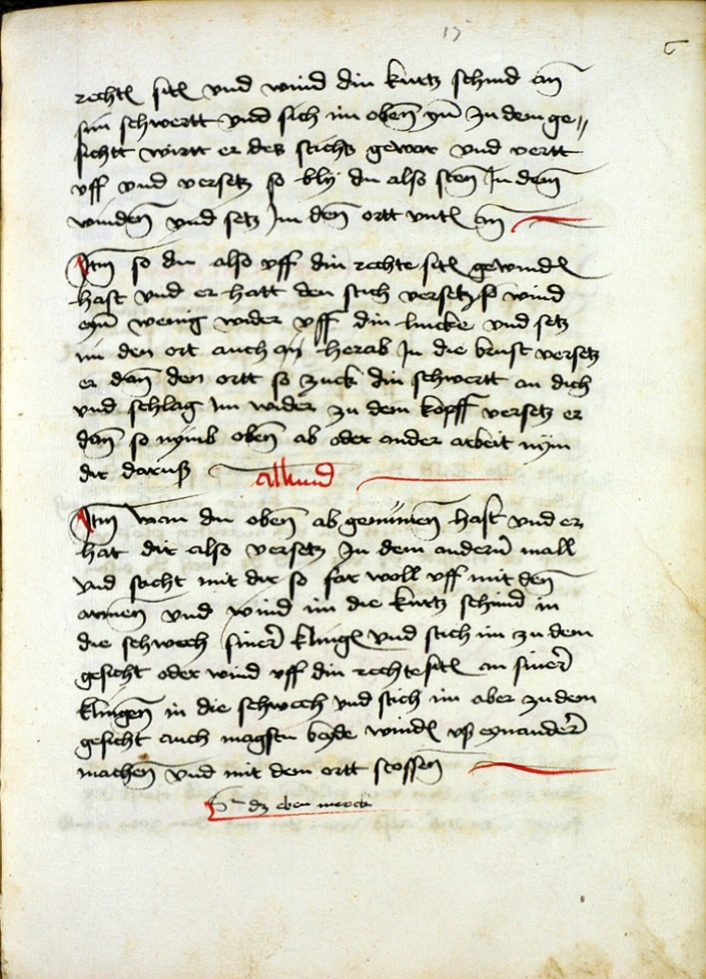 15
6
rechtē sitē vnd wind din kurtz schnid an̄
sin schwertt vnd stich im oben̄ yn̄ zu dem ge„
sichtt wirtt er des stichs gewar vnd vertt
vff vnd versetz so blÿ du also sten̄ Jn dem̄
winden̄ vnd setz Jm den̄ ortt vntē an̄
Jtm̄ so du also vff din rechte sitē gewindē
hast vnd er hatt den stich versetzt so wind
eyn̄ wenig wider vff din lincke vnd setz
im den ort auch an̄ herab Jn die brust versetz
er dan̄ den ortt so zuck din schwertt an dich
vnd schlag Jm wider zu dem kopff versetz er
dan̄ so nÿmb oben̄ ab oder ander arbeit nÿm
dir daruß
Jtm̄ wan du oben̄ ab genūmen̄ hast vnd er
hat dir also versetz Jn dem andern̄ mall
vnd sacht mit dir so far woll vff mit den̄
armen̄ vnd wind im die kurtz schnid in
die schwech siner̄ klingē vnd stich im zu dem
gesicht oder wind vff din rechte sitē an siner̄
klingen̄ in die schwech vnd stich im aber zu dem
gesicht auch magstu beÿde windē vß eynander̄
machen̄ vnd mit dem ortt stossen̄
dz eben merck